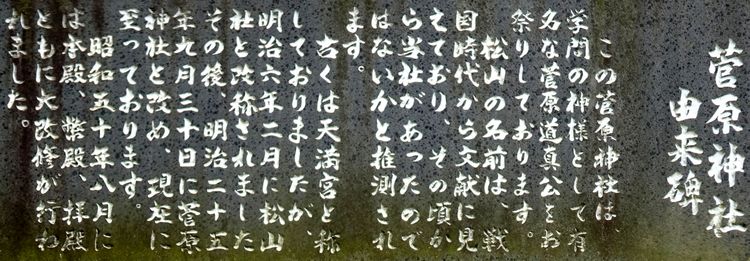 菅原神社
由来碑
この菅原神社は、
学問の神様として有
名な菅原道真公をお
祭りしております。
松山の名前は、戦
国時代から文献に見
えており、その頃か
ら当社があったので
はないかと推測され
ます。
古くは天満宮と称
しておりましたが、
明治六年二月に松山
社と改称されました
その後、明治二十五
年九月三十日に菅原
神社と改め、現在に
至っております。
昭和五十年八月に
は本殿、幣殿、拝殿
ともに大改修が行わ
れました。